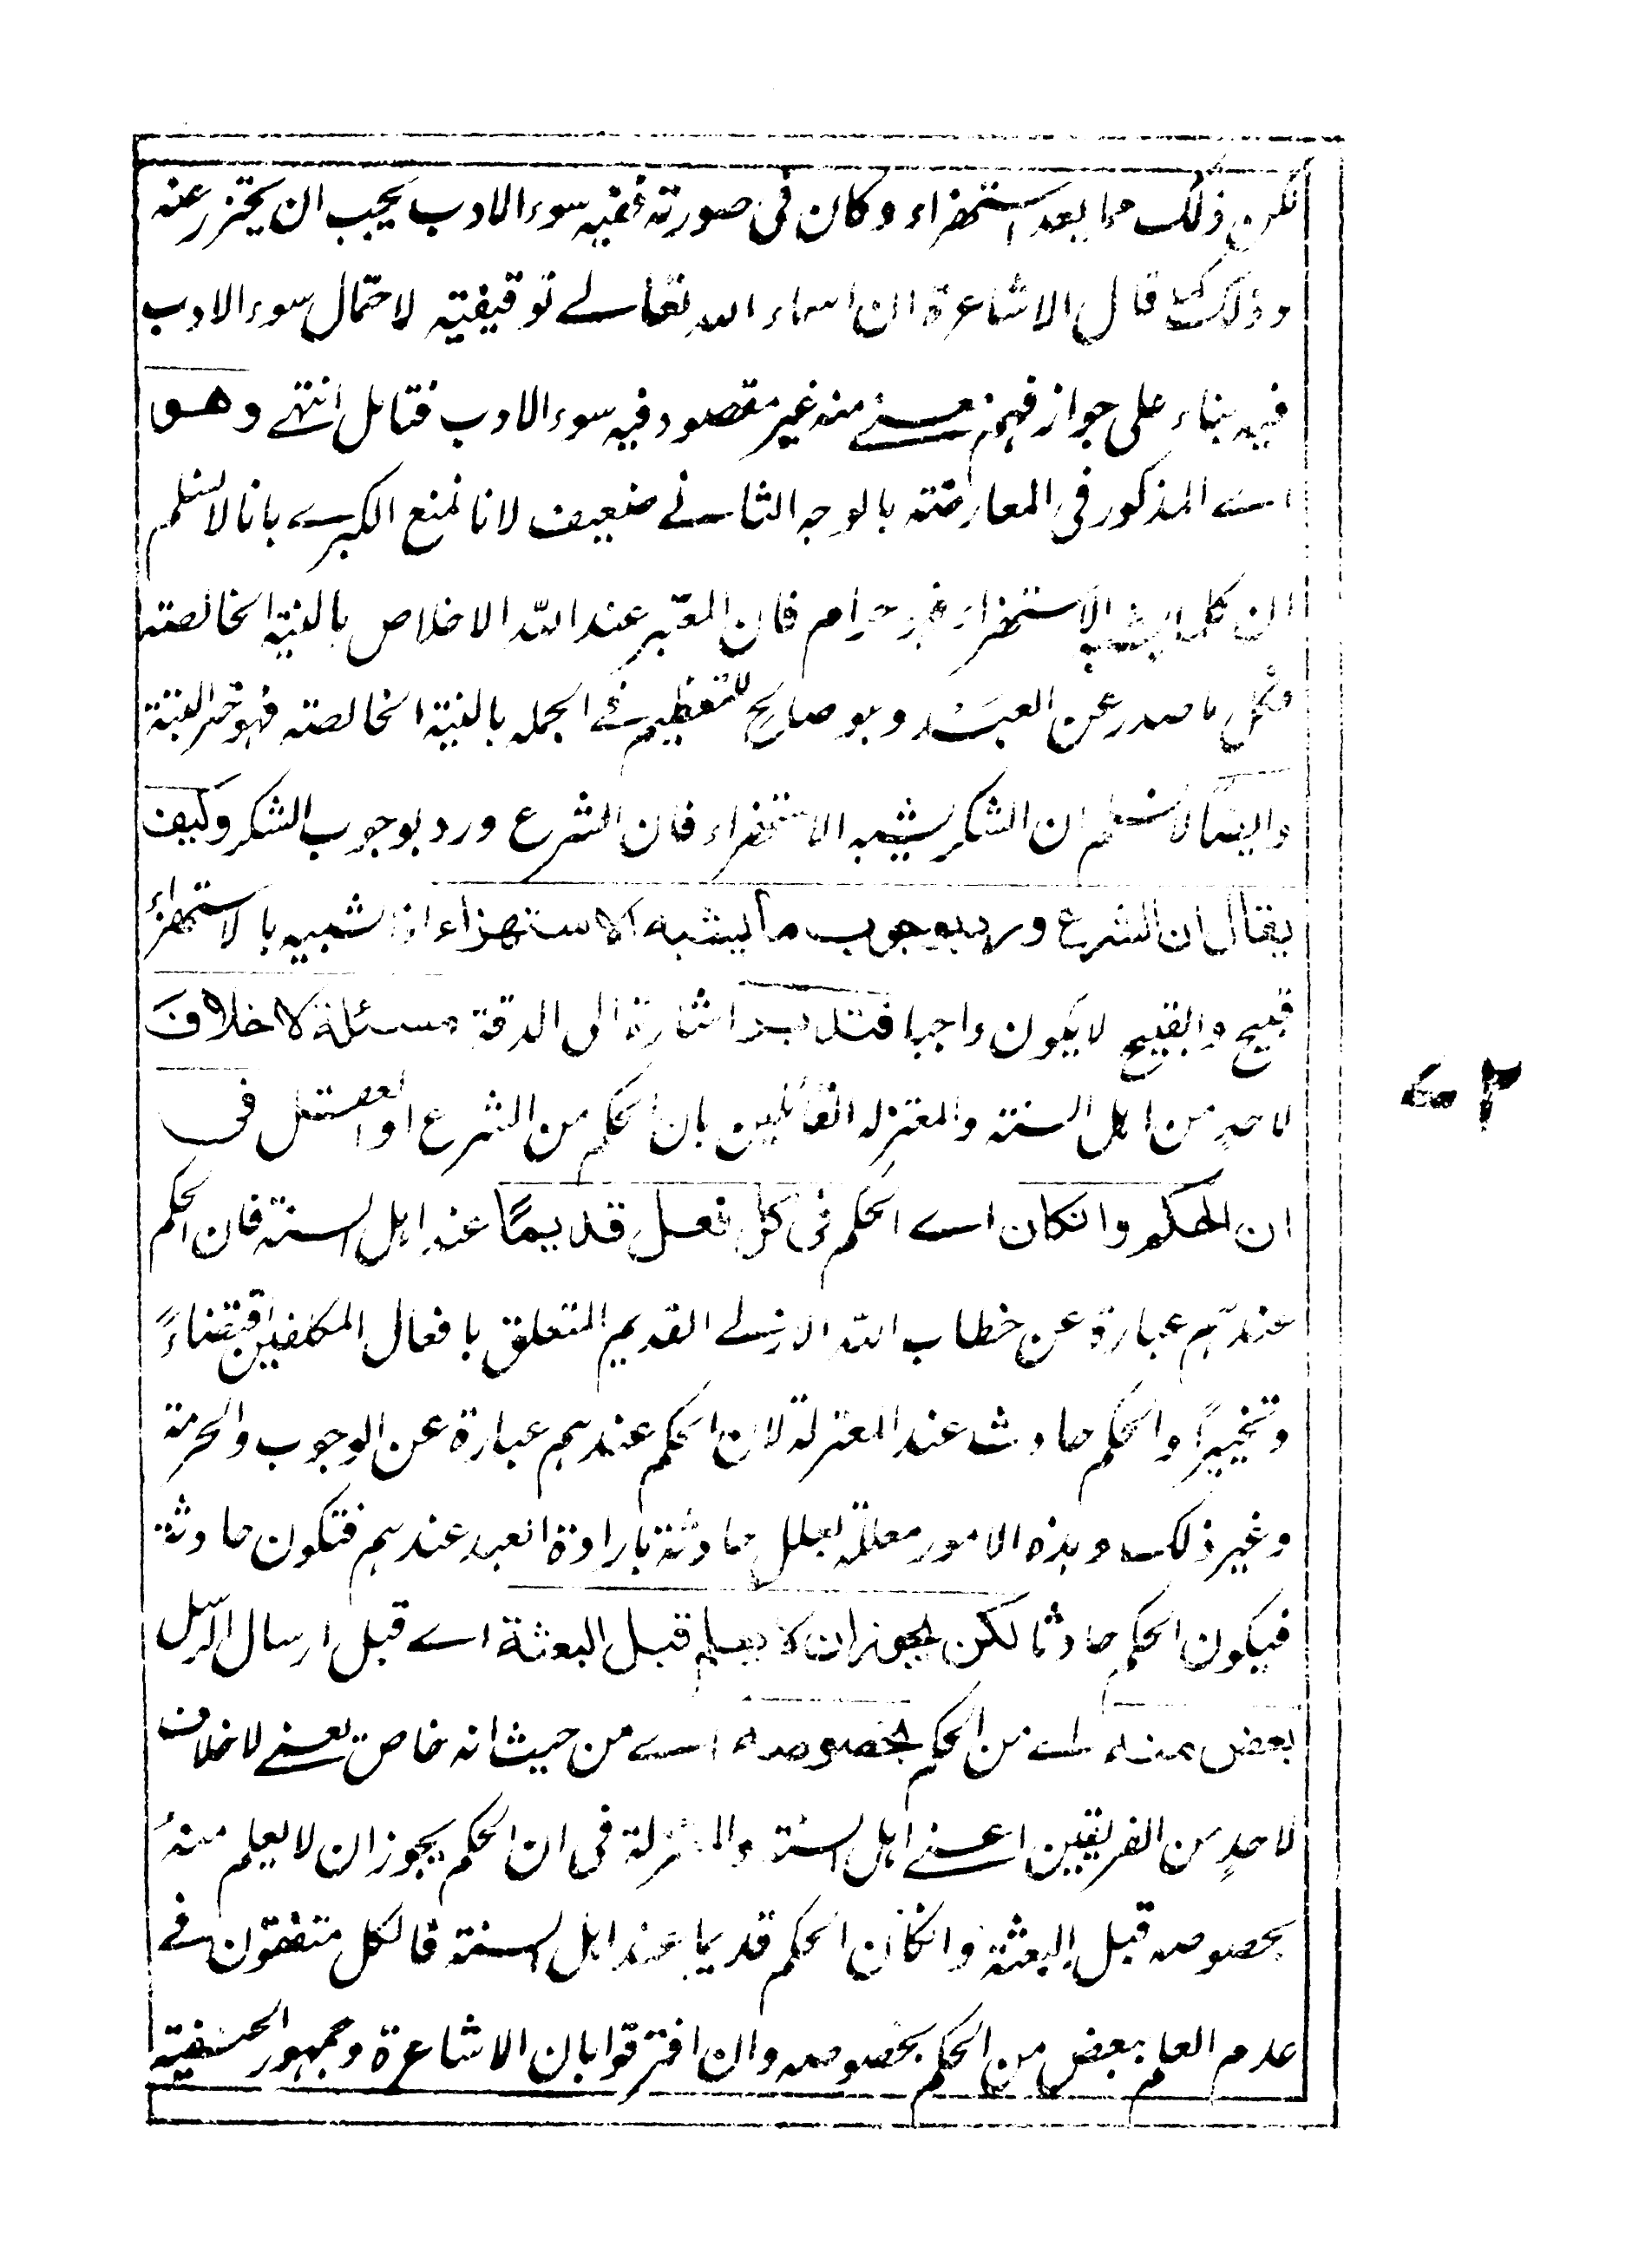 لكن ذلك مما يعد استهزاء وكان فى صورته ففيه سوء الادب يجب ان يحترز عنه
ولذلك قال الاشاعرة ان اسماء الله تعالے توقيفية لاحتمال سوء الادب
فيه بناء على جواز فهم معنے منه غير مقصود فيه سوء الادب فتامل انتهے وهو
اے المذكور فى المعارضة بالوجه الثانے ضعيف لانا نمنع الكبرے بانا لا نسلم
ان كل ما يشبه الاستهزاء فهو حرام فان المعتبر عند الله الاخلاص بالنية الخالصة
فكل ما صدر عن العبد وهو صالح للتعظيم فے الجملة بالنية الخالصة فهو خير البتة
وايضًا لا نسلم ان الشكر يشبه الاستهزاء فان الشرع ورد بوجوب الشكر وكيف
يقال ان الشرع ورد بوجوب ما يشبه الاستهزاء اذ الشبيه بالاستهزاء
قبيح والقبيح لا يكون واجبا فتدبر اشارة الى الدقة مسئلة لا خلاف
لاحدٍ من اهل السنة والمعتزلة القائلين بان الحكم من الشرع او العقل فى
ان الحكم وانكان اے الحكم فى كل فعل قديمًا عند اهل السنة فان الحكم
عندهم عبارة عن خطاب الله الازلے القديم المتعلق بافعال المكلفين اقتضاءً
وتخييرًا والحكم حادث عند المعتزلة لان الحكم عندهم عبارة عن الوجوب والحرمة
وغير ذلك وهذه الامور معللة بعلل حادثة بارادة العبد عندهم فتكون حادثة
فيكون الحكم حادثا لكن يجوز ان لا يعلم قبل البعثة اے قبل ارسال الرسل
بعض منه اے من الحكم بخصوصه اے من حيث انه خاص يعنے لا خلاف
لاحدٍ من الفريقين اعنے اهل السنة والمعتزلة فى ان الحكم يجوز ان لا يعلم منه
بخصوصه قبل البعثة وانكان الحكم قديما عند اهل السنة فالكل متفقون فے
عدم العلم ببعض من الحكم بخصوصه وان افترقوا بان الاشاعرة وجمهور الحنفية